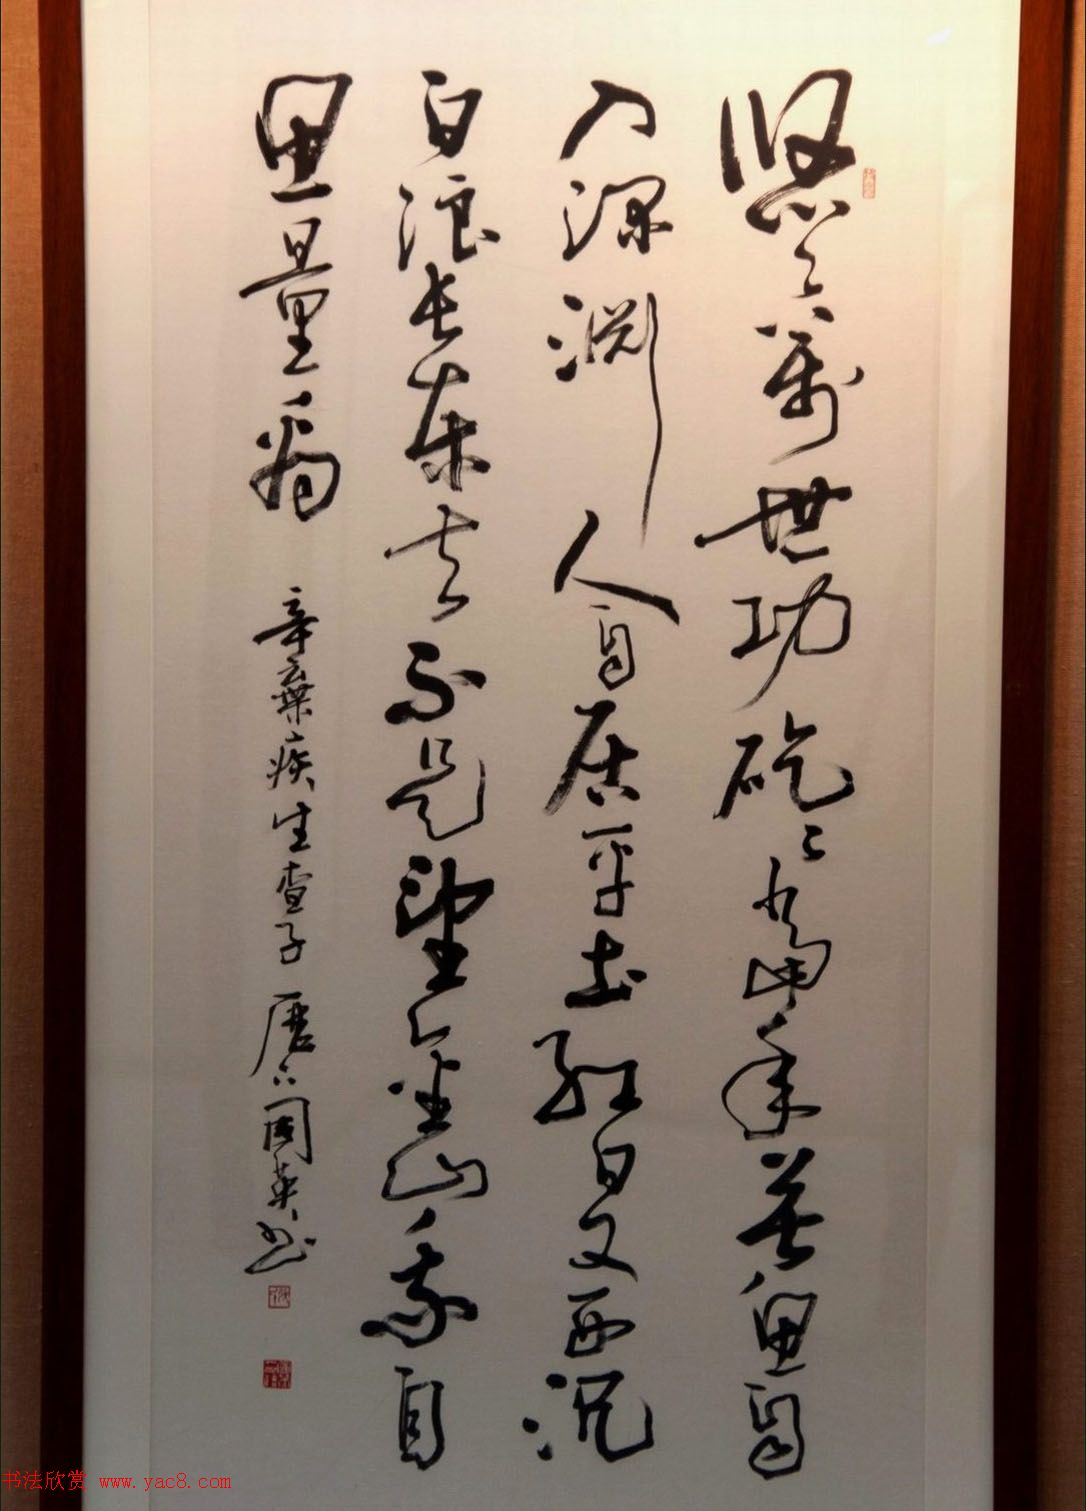 悠悠萬世功矻矻當年苦魚自
入深淵人自居平土紅日又西沉
白浪長東去不是望金山我自
思量禹
辛棄疾生查子 國英书
书法欣赏 www.yac8.com